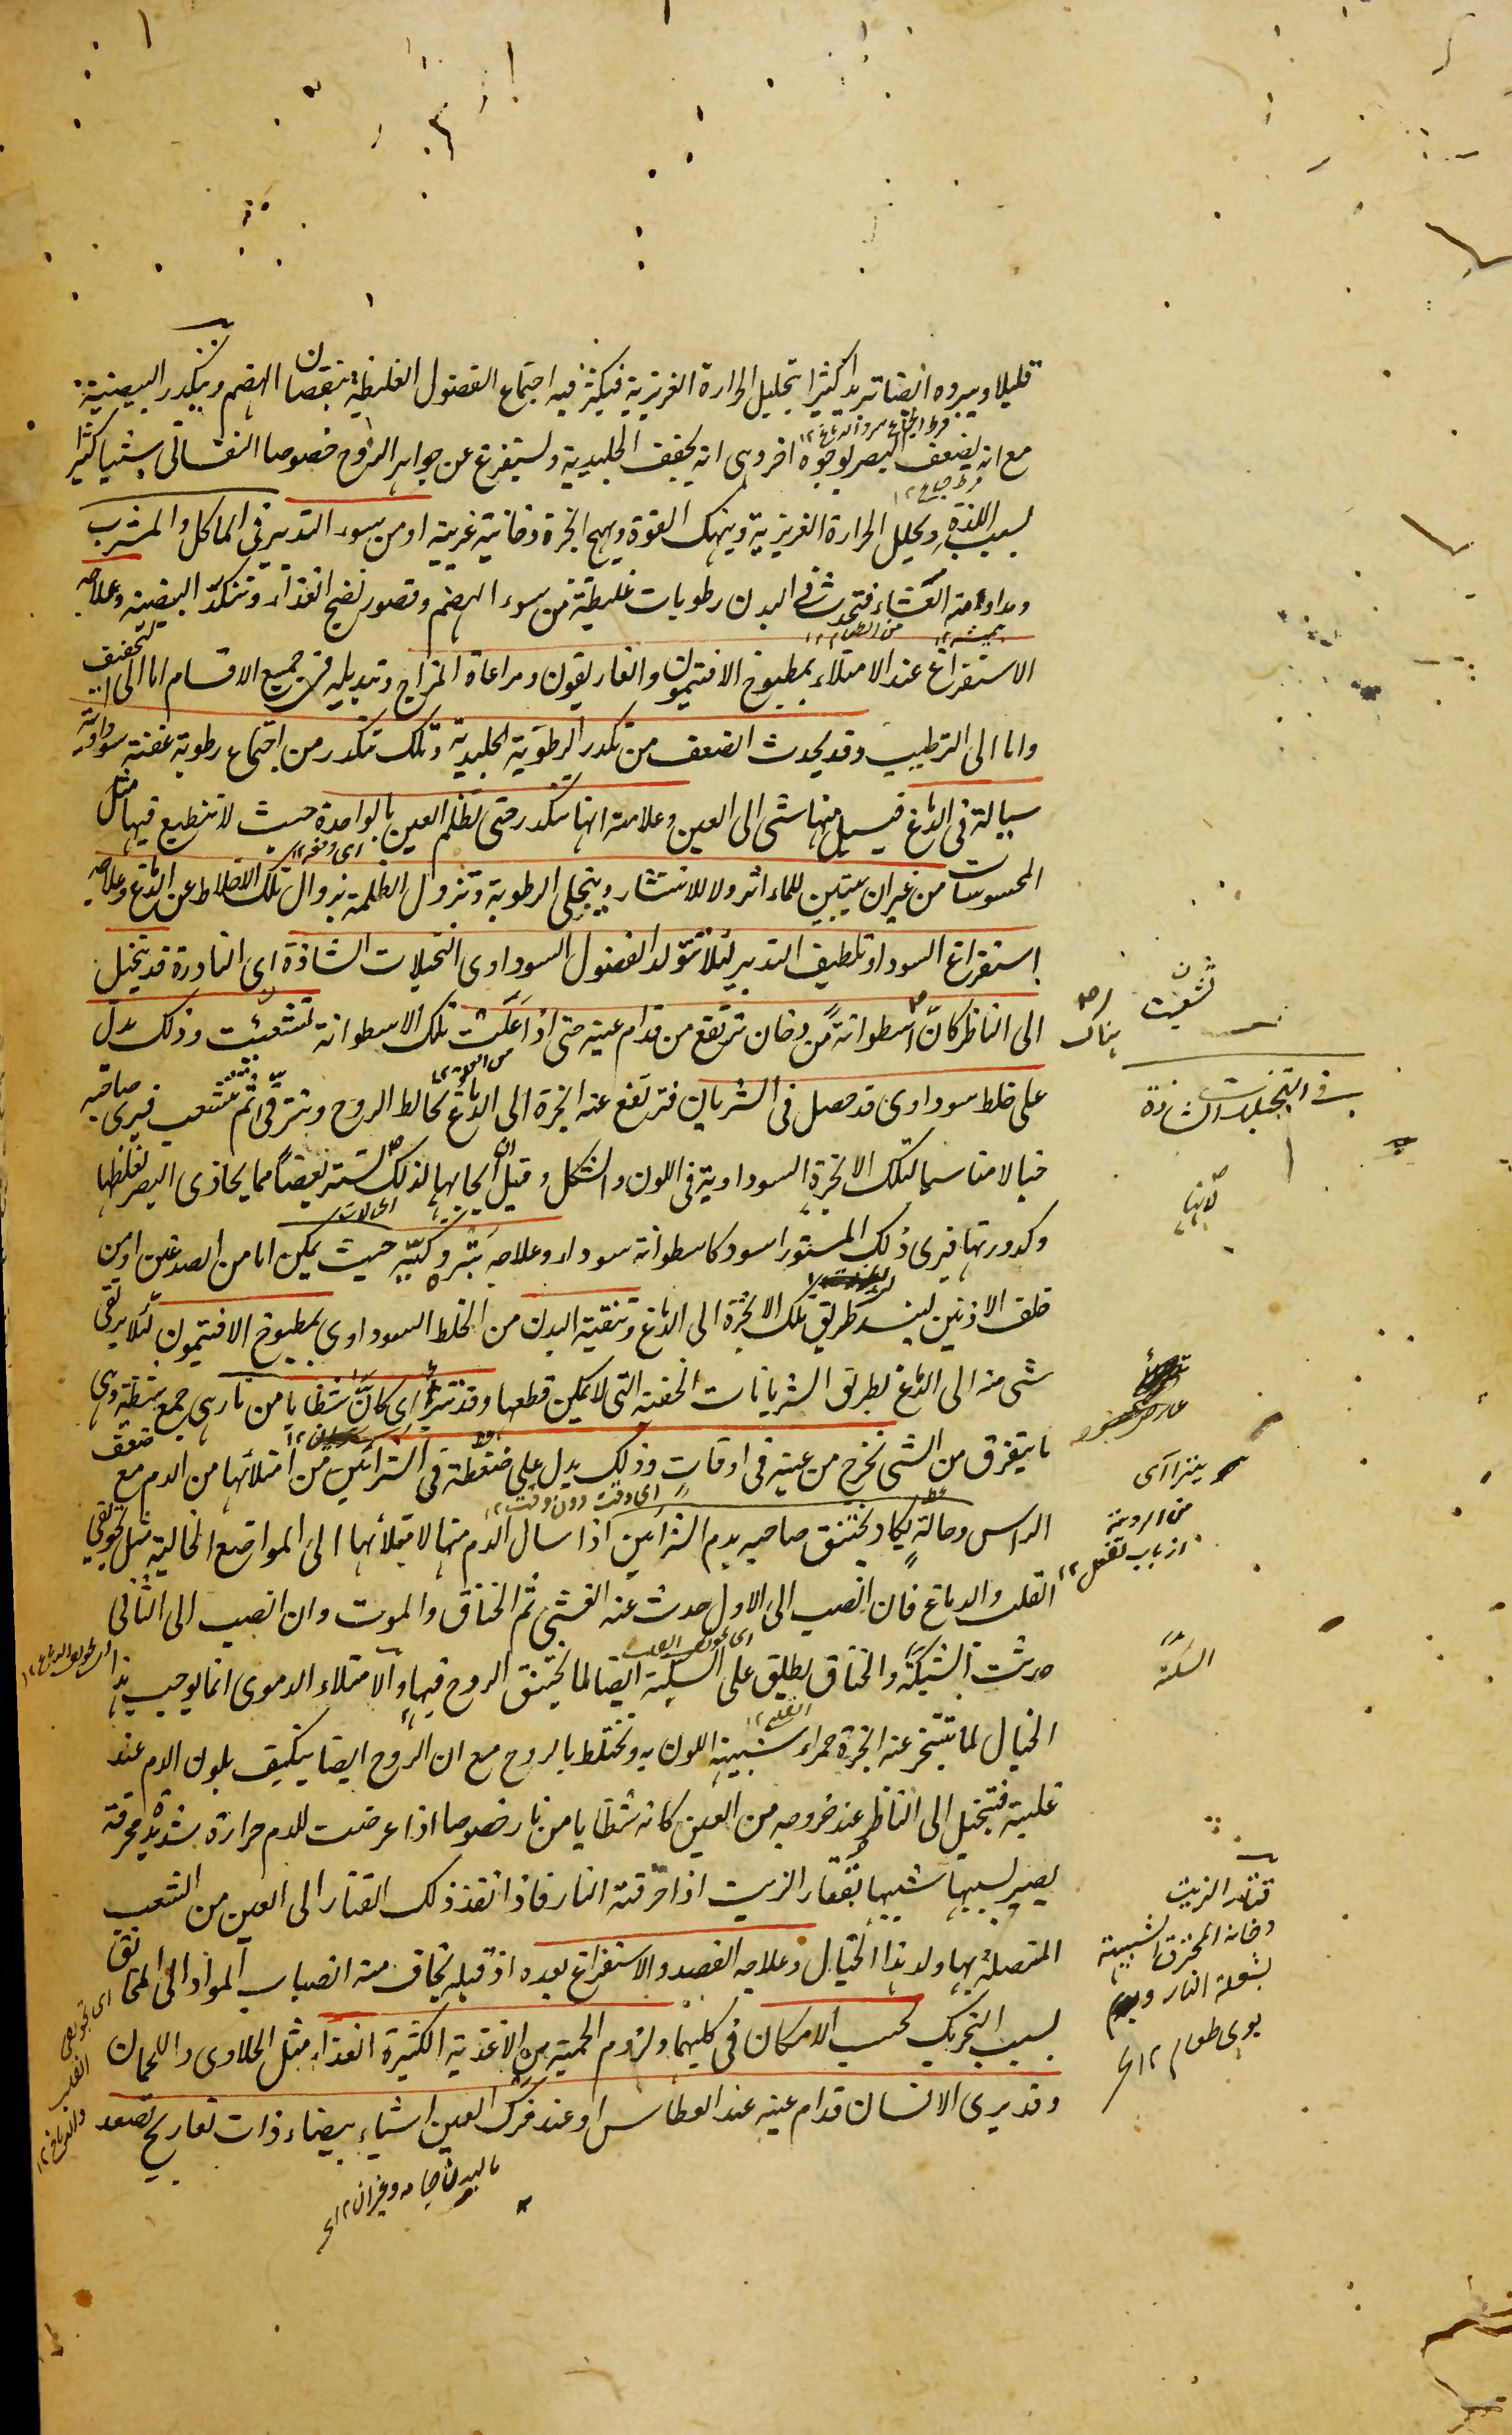 قليلا ويبرده ايضا تبريدا كثيرا بتحليل الحرارة الغريزية فيكثر فيه اجتماع الفضول الغليظة بنقصان الهضم ويتكدر البيضية
مع انه يضعف البصر بوجوه اخر وهى انه يجفف الجليدية ويستفرغ عن جواهر الروح خصوصا النفسانى شيئا كثيرا
بسبب اللذة ويحلل الحرارة الغريزية وينهك القوة ويهيج ابخرة دخانية غريبة او من سوء التدبير فى الماكل والمشرب
ومداومة العشاء فتحدث فى البدن رطوبات غليظة من سوء الهضم وقصور نضج الغذاء وتتكدر البيضية وعلاجه
الاستفراغ عند الامتلاء بمطبوخ الافتيمون والغاريقون ومراعاة المزاج وتبديله فى جميع الاقسام اما الى التجفيف
واما الى الترطيب وقد يحدث الضعف من تكدر الرطوبة الجليدية وتلك تتكدر من اجتماع رطوبة عفنة سوداوية
سيالة فى الدماغ فيسيل منها شى الى العين وعلامته انها تتكدر حتى تظلم العين بالواحدة حيث لا تنطبع فيها مثل
المحسوسات من غير ان يتبين للماء اثر ولا للانتشار وينجلى الرطوبة وتزول الظلمة بزوال تلك الاخلاط عن الدماغ وعلاجه
استفراغ السوداء وتلطيف التدبير لئلا تتولد الفضول السوداوى التخيلات الشاذة اى النادرة قد يتخيل
الى الناظر كان اسطوانة من دخان ترتفع من قدام عينه حتى اذا علت تلك الاسطوانة تشعبت وذلك يدل
على خلط سوداوى قد حصل فى الشريان فترتفع عنه ابخرة الى الدماغ يخالط الروح ويترقى ثم تتشعب فيرى صاحبه
خيالا مناسبا لتلك الابخرة السوداوية فى اللون والشكل وقيل ان ايجابها لذلك لستر بعضا مما يحاذى البصر لغلظها
وكدورتها فيرى ذلك المستور اسود كاسطوانة سوداء وعلاجه بتره وكيه حيث يمكن اما من الصدغين او من
خلف الاذنين لينسد طريق تلك الابخرة الى الدماغ وتنقية البدن من الخلط السوداوى بمطبوخ الافتيمون لئلا يرقى
شى منه الى الدماغ بطريق الشريانات الخفية التى لا يمكن قطعها وقد يترا اى كان شظايا من نار هى جمع شظية وهى
ما يتفرق من الشى تخرج من عينه فى اوقات وذلك يدل على ضغطة فى الشرائين من امتلائها من الدم مع ضعف
الراس وحالة يكاد يختنق صاحبه بدم الشرائين اذا سال الدم منها لامتلائها الى المواضع الخالية مثل تجويفى
القلب والدماغ فان انصب الى الاول حدث عنه الغشى ثم الخناق والموت وان انصب الى الثانى
حدثت السكتة والخناق يطلق على السكتة ايضا لما يختنق الروح فيها والامتلاء الدموى انما يوجب هذا
الخيال لما يتبخر عنه ابخرة حمراء شبيهة اللون به وتختلط بالروح مع ان الروح ايضا يتكيف بلون الدم عند
غلبته فيتخيل الى الناظر عند خروجه من العين كانه شظايا من نار خصوصا اذا عرضت للدم حرارة شديدة محرقة
يصير بسببها شبيها بقتار الزيت اذا احرقته النار فاذا نفذ ذلك القتار الى العين من الشعب
المتصلة بها ولد هذا الخيال وعلاجه الفصد والاستفراغ بعده اذ قبله يخاف منه انصباب المواد الى المخانق
بسبب التحريك بحسب الامكان فى كليهما ولزوم الحمية من الاغذية الكثيرة الغذاء مثل الحلاوى واللحمان
وقد يرى الانسان قدام عينه عند العطاس او عند فرك العين اشياء بيضاء ذات تعاريج تصعد
تشعبت
هناك
فى التخيلات الشاذة
لانها
من الروية
از باب تفعل ١٢
السكتة
قتار الزيت
دخانه المحترق الشبيه
بشعلة النار
بوى طعام ١٢
اى تجويفى
القلب
والدماغ ١٢